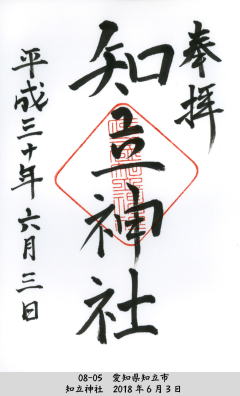 奉拝
知立神社
平成三十年六月三日
08-05 愛知県知立市
知立神社 2018年6月3日